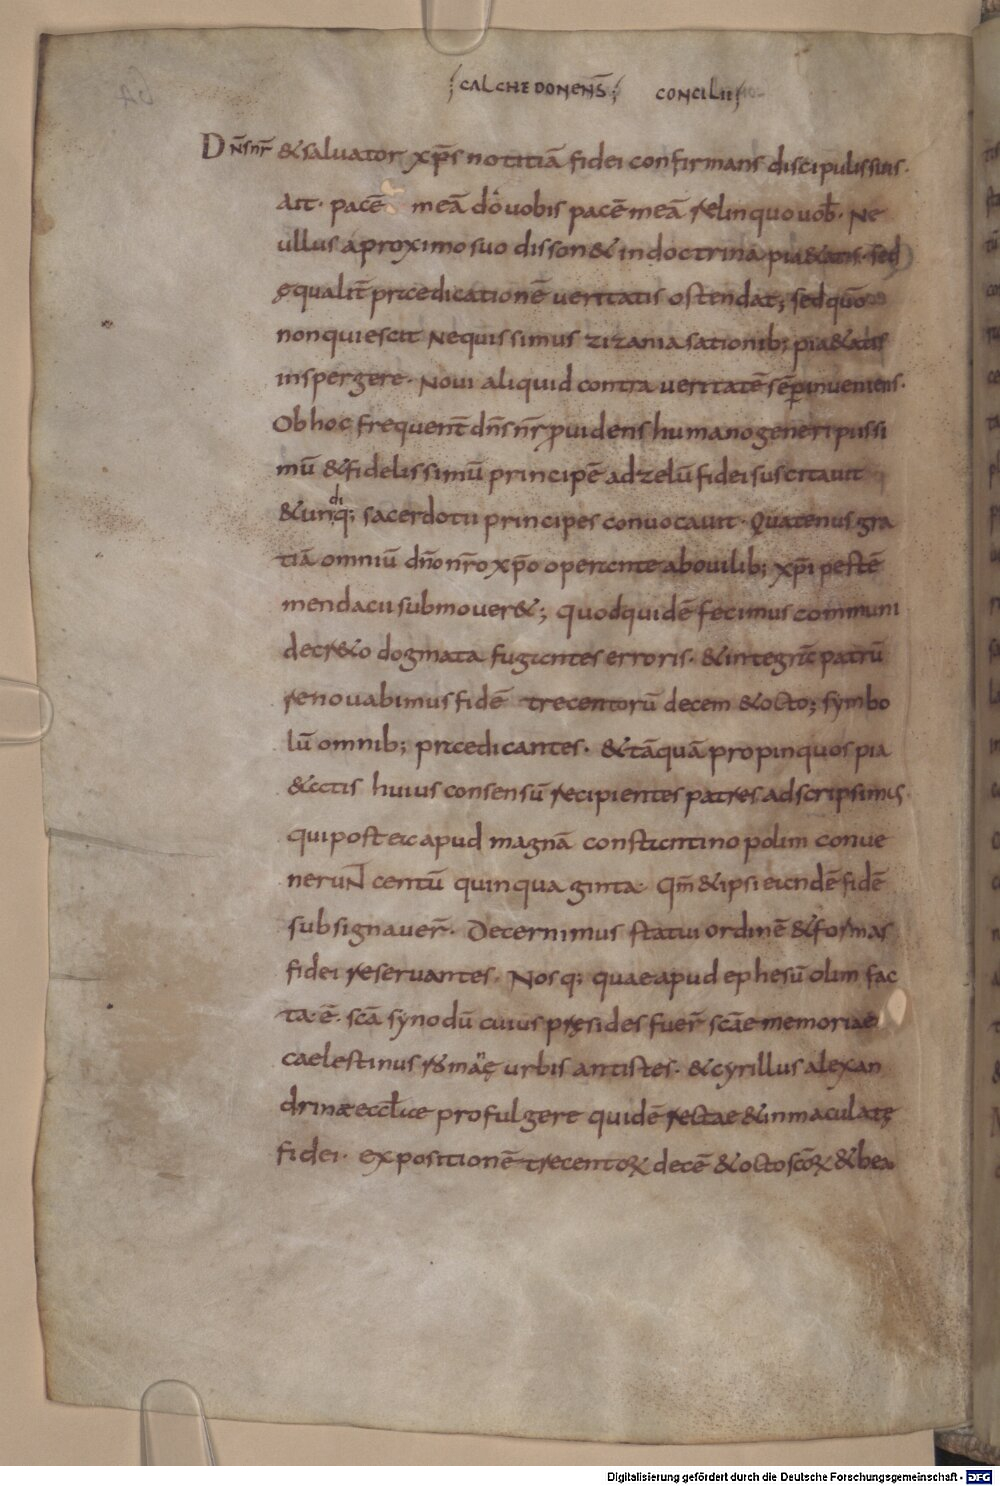 CALCHEDONENS̄; CONCILIU
Dn̄s nr̄ & saluator xp̄s notitiā fidei confirmans discipulis suis.
ait. pacē meā dō uobis pacē meā relinquo uob̄. Ne
ullus a proximo suo disson& in doctrina pi&atis. sed
ęqualit̄ praedicationē ueritatis ostendat; sed quō
non quiescit Nequissimus zizania sationib; pi&atis
inspergere. Noui aliquid contra ueritatē sēp inueniens.
Ob hoc frequent̄ dn̄s nr̄ puidens humano generi piissi
mū & fidelissimū principē ad zelū fidei suscitauit
& undiq; sacerdotii principes conuocauit. Quatenus gra
tiā omniū dn̄o nr̄o xp̄o operante ab ouilib; xp̄i pestē
mendacii submouer&; quod quidē fecimus communi
decr&o dogmata fugantes erroris. & integrā patrū
renouabimus fidē trecentorū decem & octo; symbo
lū omnib; praedicantes. & tāquā propinquos pia
&atis huius consensū recipientes patres adscripsimus.
qui post ea apud magnā constantinopolim conue
nerunt centū quinquaginta. Qm̄ & ipsi eandē fidē
subsignauer̄. Decernimus statui ordinē & formas
fidei reseruantes. Nosq; quae apud ephesū olim fac
ta ē. scā synodū cuius pręsides fuer̄ scāe memoriae
caelestinus romāę urbis antistes. & cyrillus alexan
drinae eccl̄iae profulgere quidē rectae & inmaculatę
fidei. expositionē trecentoꝝ decē & octo scōꝝ & bea
Digitalisierung gefördert durch die Deutsche Forschungsgemeinschaft - DFG